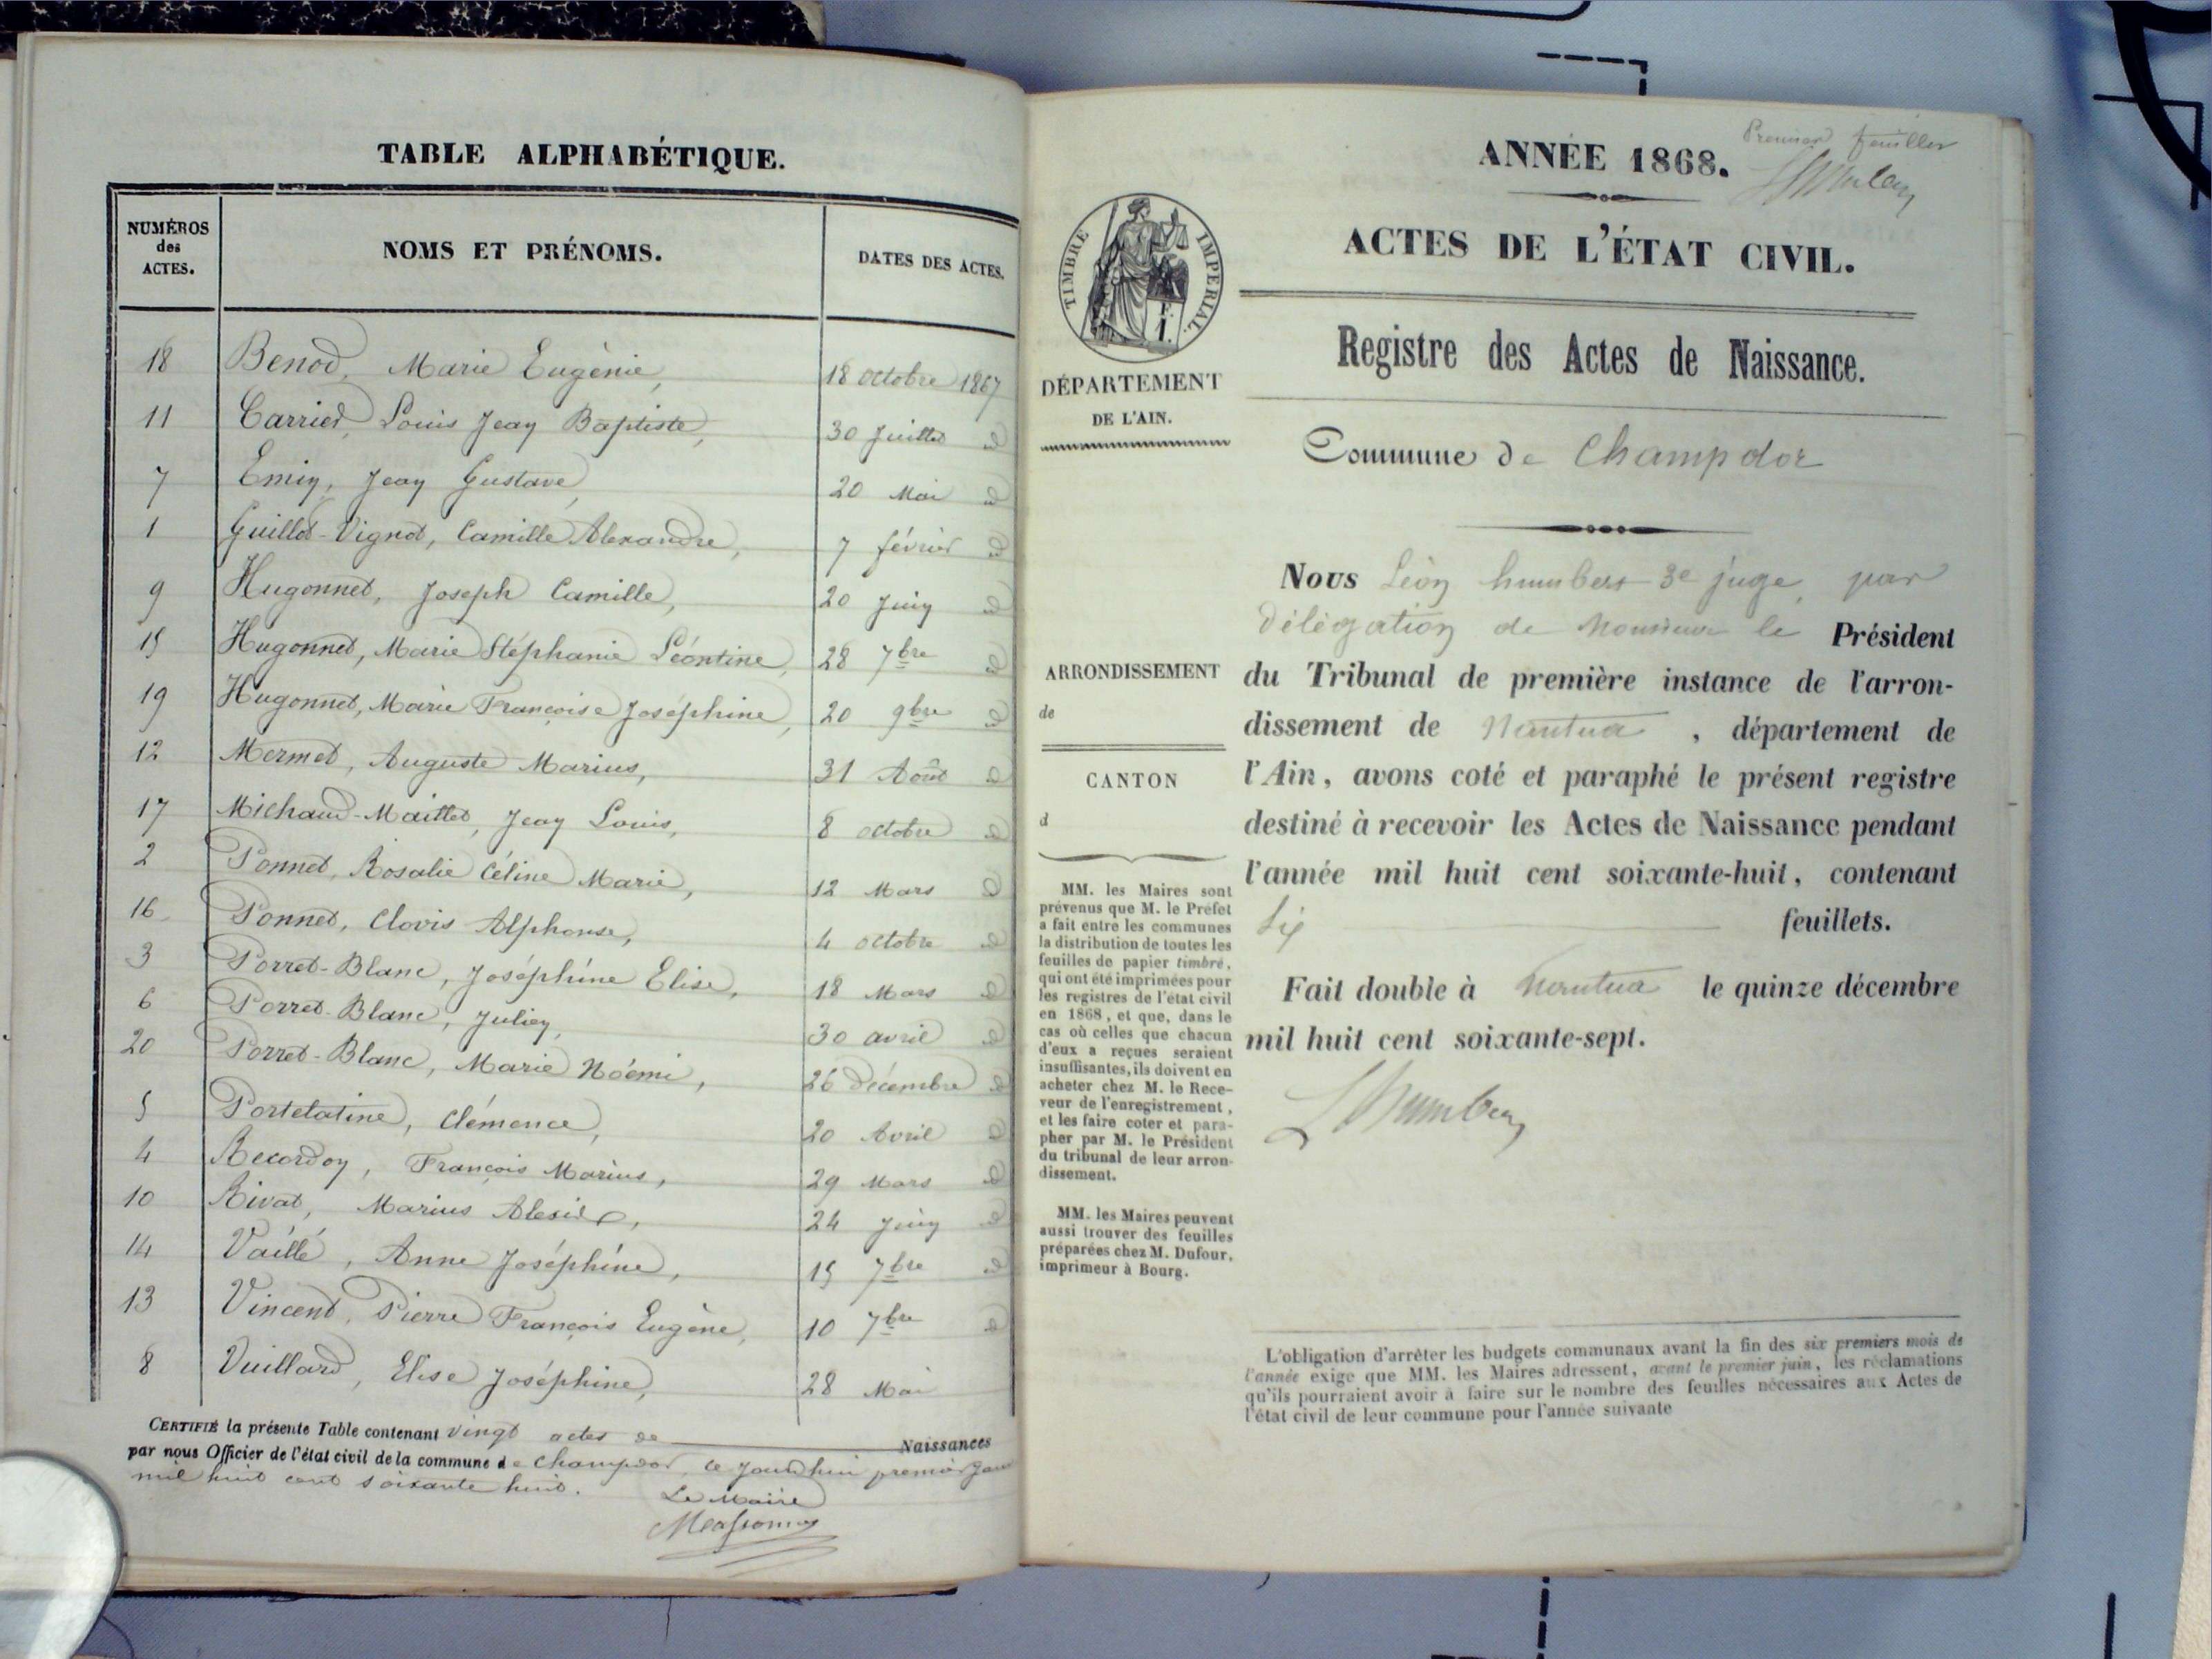 TABLE ALPHABÉTIQUE.
NUMÉROS des ACTES. NOMS ET PRÉNOMS. DATES DES ACTES.
18 Benod, Marie Eugénie, 18 octobre 1867
11 Carrier, Louis Jean Baptiste, 30 Juillet d
7 Emin, Jean Gustave, 20 Mai d
1 Guillot-Vignot, Camille Alexandre, 7 février d
9 Hugonnet, Joseph Camille, 20 Juin d
15 Hugonnet, Marie Stéphanie Léontine, 28 7bre d
19 Hugonnet, Marie Françoise Joséphine, 20 9bre d
12 Mermet, Auguste Marius, 31 Août d
17 Michaud-Maillet, Jean Louis, 8 octobre d
2 Ponnet, Rosalie Céline Marie, 12 Mars d
16 Ponnet, Clovis Alphonse, 4 octobre d
3 Porret-Blanc, Joséphine Elise, 18 Mars d
6 Porret-Blanc, Julien, 30 avril d
20 Porret-Blanc, Marie Noémi, 26 décembre d
5 Portelatine, Clémence, 20 Avril d
4 Recordon, François Marius, 29 Mars d
10 Rivat, Marius Alexis, 24 Juin d
14 Vaillé, Anne Joséphine, 15 7bre d
13 Vincent, Pierre François Eugène, 10 7bre d
8 Vuillard, Elise Joséphine, 28 Mai
CERTIFIÉ la présente Table contenant vingt actes de Naissances
par nous Officier de l'état civil de la commune de Champdor, ce jourd'hui premier Jan
mil huit cent soixante huit.
Le Maire
Premier feuillet
ANNÉE 1868.
ACTES DE L'ÉTAT CIVIL.
TIMBRE IMPERIAL.
Registre des Actes de Naissance.
DÉPARTEMENT
DE L'AIN.
Commune de Champdor
Nous Léon humbert 3e juge, par
délégation de Monsieur le Président
du Tribunal de première instance de l'arron-
dissement de Nantua, département de
l'Ain, avons coté et paraphé le présent registre
destiné à recevoir les Actes de Naissance pendant
l'année mil huit cent soixante-huit, contenant
Six feuillets.
Fait double à Nantua le quinze décembre
mil huit cent soixante-sept.
LHumbert
ARRONDISSEMENT
de
CANTON
d
MM. les Maires sont
prévenus que M. le Préfet
a fait entre les communes
la distribution de toutes les
feuilles de papier timbré,
qui ont été imprimées pour
les registres de l'état civil
en 1868, et que, dans le
cas où celles que chacun
d'eux a reçues seraient
insuffisantes, ils doivent en
acheter chez M. le Rece-
veur de l'enregistrement,
et les faire coter et para-
pher par M. le Président
du tribunal de leur arron-
dissement.
MM. les Maires peuvent
aussi trouver des feuilles
préparées chez M. Dufour,
imprimeur à Bourg.
L'obligation d'arrêter les budgets communaux avant la fin des six premiers mois de
l'année exige que MM. les Maires adressent, avant le premier juin, les réclamations
qu'ils pourraient avoir à faire sur le nombre des feuilles nécessaires aux Actes de
l'état civil de leur commune pour l'année suivante